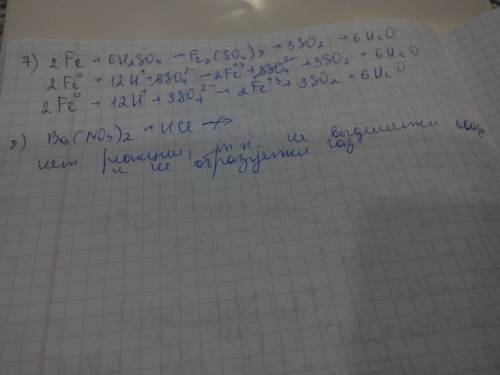 7) 2Fe + 6H₂SO₄ → Fe₂(SO₄)₃ + 3SO₂ + 6H₂O
2Fe⁰ + 12H⁺ + 6SO₄²⁻ → 2Fe⁺³ + 3SO₄²⁻ + 3SO₂ + 6H₂O
2Fe⁰ + 12H⁺ + 3SO₄²⁻ → 2Fe⁺³ + 3SO₂ + 6H₂O
8) Ba(NO₃)₂ + HCl ↛
нет реакции, т.к. не выделяется
и не образуется газ